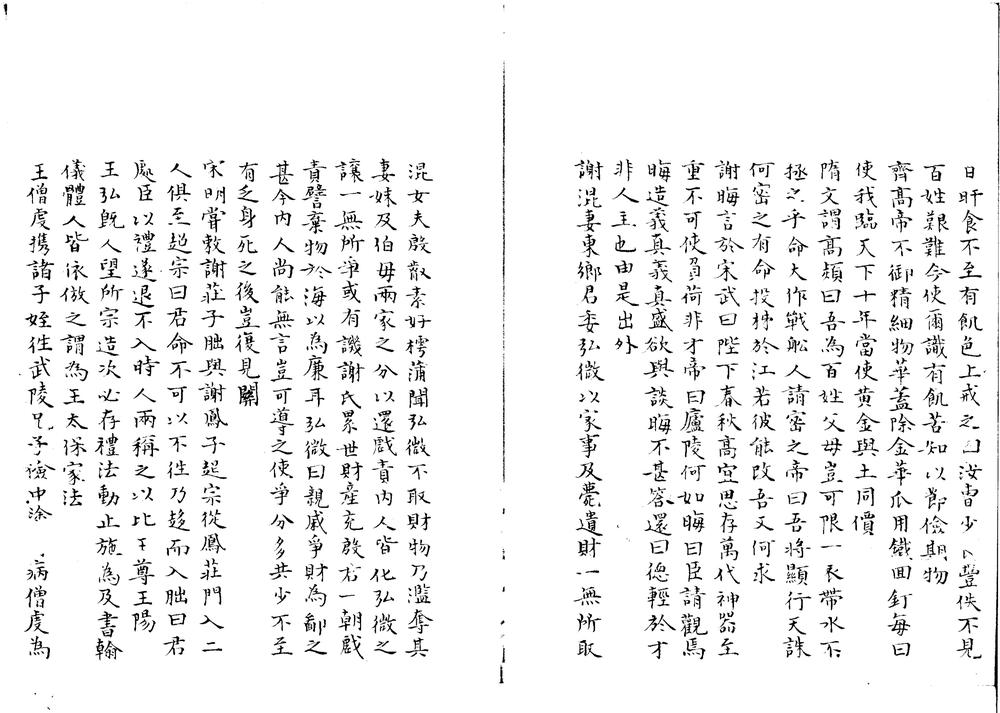 日旰食不至有飢色上戒之曰汝曹少長豐佚不見
百姓艱難今使爾識有飢苦知以節儉期物
齊高帝不御精細物華蓋除金華爪用鐵回釘每曰
使我臨天下十年當使黄金與土同價
隋文謂高熲曰吾為百姓父母豈可限一衣帶水不
拯之乎命大作戰舩人請密之帝曰吾將顯行天誅
何密之有命投柹於江若彼能改吾又何求
謝晦言於宋武曰陛下春秋高宜思存萬代神器至
重不可使負荷非才帝曰廬陵何如晦曰臣請觀焉
晦造義真義真盛欲與談晦不甚答還曰德輕於才
非人主也由是出外
謝混妻東鄉君委弘微以家事及薨遺財一無所取
混女夫殷叡素好樗蒲聞弘微不取財物乃濫奪其
妻妹及伯母兩家之分以還戲責內人皆化弘微之
讓一無所爭或有譏謝氏累世財產充殷君一朝戲
責譬棄物於海以為廉耳弘微曰親戚爭財為鄙之
甚今內人尚能無言豈可導之使爭分多共少不至
有乏身死之後豈復見關
宋明嘗敕謝莊子朏與謝鳳子超宗從鳳莊門入二
人俱至超宗曰君命不可以不徃乃趍而入朏曰君
處臣以禮遂退不入時人兩稱之以比王尊王陽
王弘既人望所宗造次必存禮法動止施為及書翰
儀體人皆依倣之謂為王太保家法
王僧虔携諸子姪徃武陵兄子儉中塗 病僧虔為